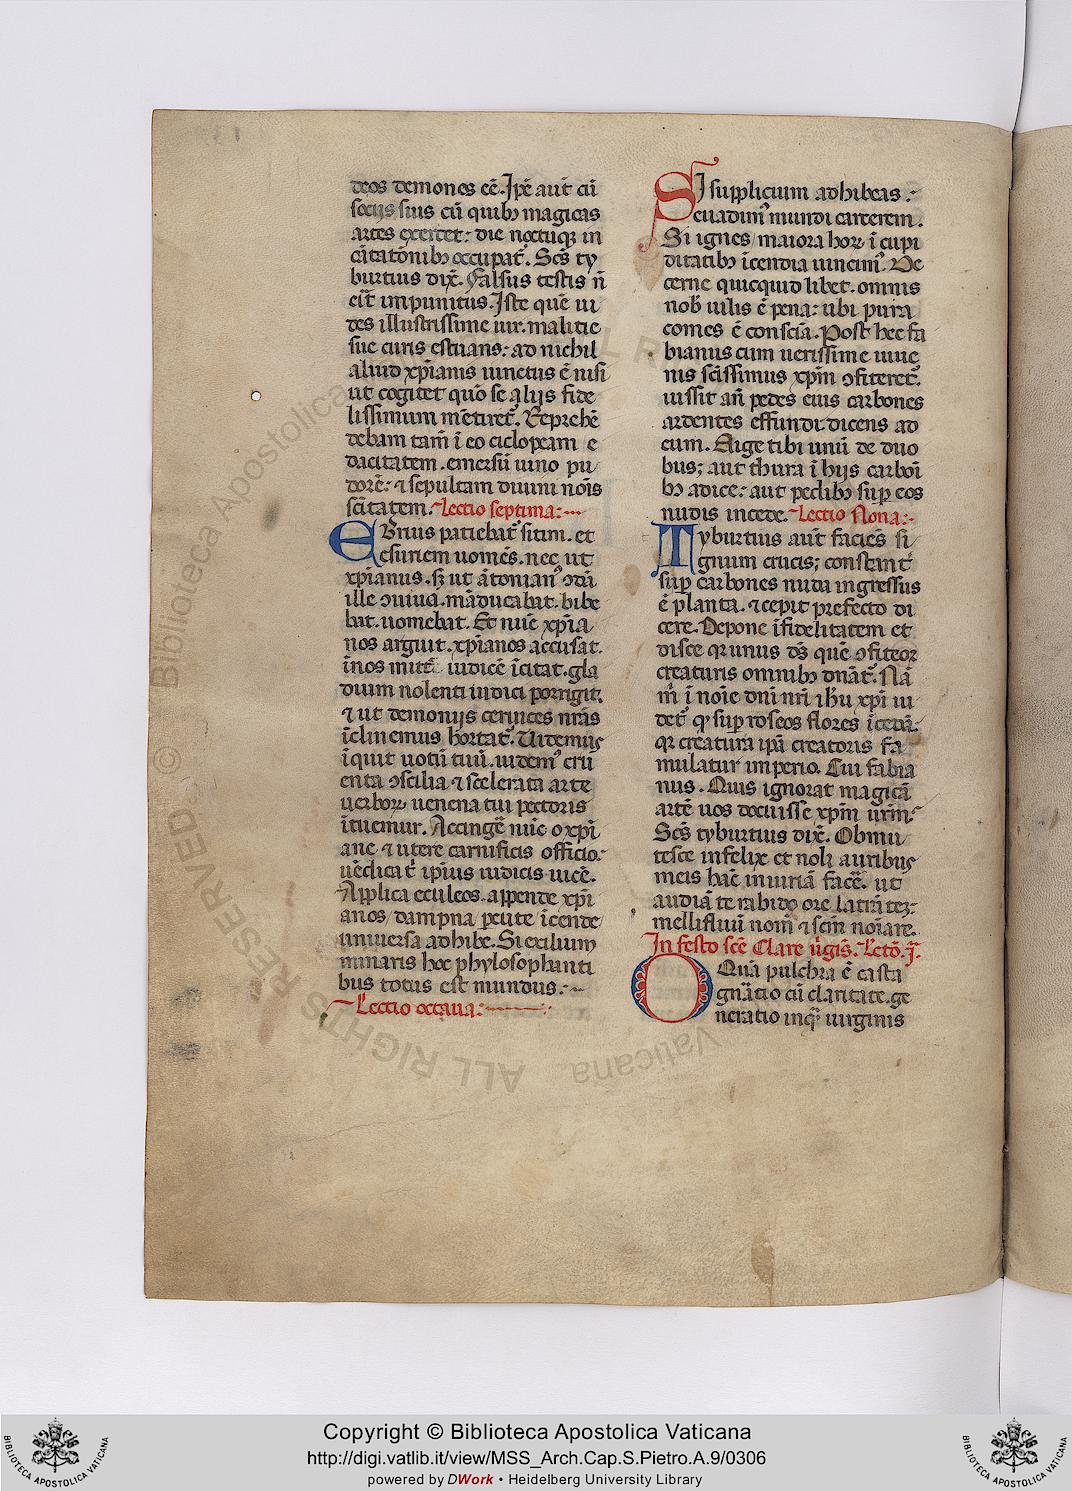 deos demones eē. Ip̄e aut̄ cū
socijs suis cū quibꝫ magicas
artes exercet: die noctuqꝫ in
cātatōnibꝫ occupat᷑. Scs̄ ty
burtius dix̄. Falsus testis n̄
erit̄ impunitus. Iste quē ui
des illustrissime uir. malitie
sue curis estuans: ad nichil
aliud xp̄ianis iunctus ē nisi
ut cogitet quō se alijs fide
lissimum mētiret᷑. Reprehē
debam tam̄ ī eo ciclopeam e
dacitatem. emersū uino pu
dorē: ⁊ sepultam diuini nōis
scītatem. Lectio septima:
Ebrius patiebat᷑ sitim. et
esuriem uomēs. nec ut
xp̄ianus. sꝫ ut ātonian᷒ ꝯdā
ille ꝯuiuā. māducabat. bibe
bat. uomebat. Et nūc xp̄ia
nos arguit. xp̄ianos accusat.
īnos mutē iudicē īcitat. gla
dium nolenti iudici porrigit.
⁊ ut demonijs ceruices nr̄as
īclinemus hortat᷑. Uidemus
īquit uotū tuū. uidem᷒ cru
enta ꝯscilia ⁊ scelerata arte
uerboꝝ uenena tui pectoris
ītuemur. Accingē nūc o xp̄i
ane ⁊ utere carnificis officio.
uēdicat̄ ip̄ius iudicis uicē.
Applica eculeos. appende xp̄i
anos dampna percute īcende
uniuersa adhibe. Si exilium
minaris hoc phylosophanti
bus totus est mundus:
Lectio octaua:
Si supplicium adhibeas:
euadim᷒ mundi carcerem.
Si ignes maiora hoꝝ ī cupi
ditatibꝫ īcendia uincim᷒. De
cerne quicquid libet. omnis
nob̄ uilis ē pena: ubi pura
comes ē consciā. Post hec fa
bianus cum uerissime iuue
nis scīssimus xp̄m ꝯfiteret᷑.
iussit an̄ pedes eius carbones
ardentes effundi dicens ad
eum. Elige tibi unū de duo
bus; aut thura ī hijs carboī
bꝫ adice: aut pedibꝫ sup̄ eos
nudis incede. Lectio Nona:
Tyburtius aut̄ faciēs si
gnum crucis; constant̄
sup̄ carbones nuda ingressus
ē planta. ⁊ cepit prefecto di
cere. Depone īfidelitatem et
disce qꝛ unus ds̄ quē ꝯfiteor
creaturis omnibꝫ dn̄at᷑. Nā
m̄ ī noīe dn̄i nr̄i ih̄u xp̄i ui
det᷑ qꝫ sup̄ roseos flores īcedā.
qꝛ creatura ip̄a creatoris fa
mulatur imperio. Cui fabia
nus. Quis ignorat magicā
artē uos docuisse xp̄m ur̄m.
Scs̄ tyburtius dix̄. Obmu
tesce infelix et noli auribus
meis hāc iniuriā facē. ut
audiā te rabido ore latrātez:
mellifluū nom̄ ⁊ scm̄ noīare.
In festo scē Clare ūgīs. Lctō. j̄.
O Quā pulchra ē casta
gnātio cū claritate. ge
neratio inqꝫ uirginis
Copyright © Biblioteca Apostolica Vaticana
http://digi.vatlib.it/view/MSS_Arch.Cap.S.Pietro.A.9/0306
powered by DWork • Heidelberg University Library